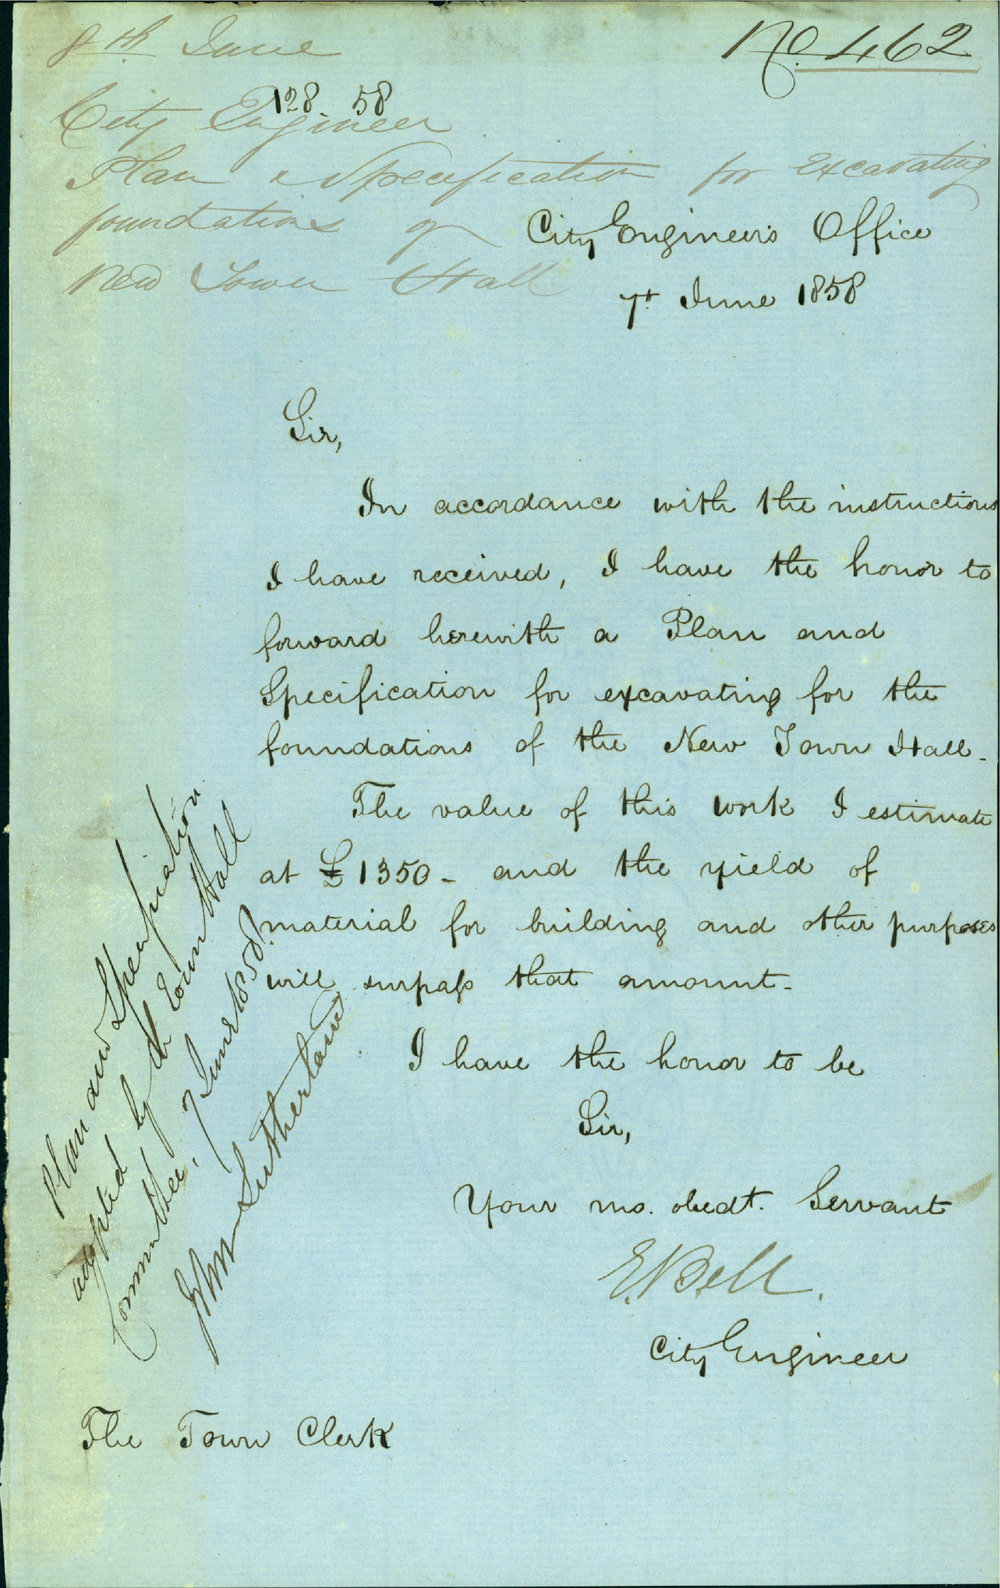 8th June
No. 462
128 58
City Engineer
Plan & Specification for Excavating
foundations of
New Town Hall
City Engineer's Office
7th June 1858
Sir,
In accordance with the instructions
I have received, I have the honor to
forward herewith a Plan and
Specification for excavating for the
foundations of the New Town Hall.
The value of this work I estimate
at £1350 - and the yield of
material for building and other purposes
will surpass that amount.
I have the honor to be
Sir,
Your mo. obedt. Servant
E. Bell.
City Engineer
The Town Clerk
Plan and Specification
adopted by the Town Hall
Committee, 7 June 1858.
John Sutherland